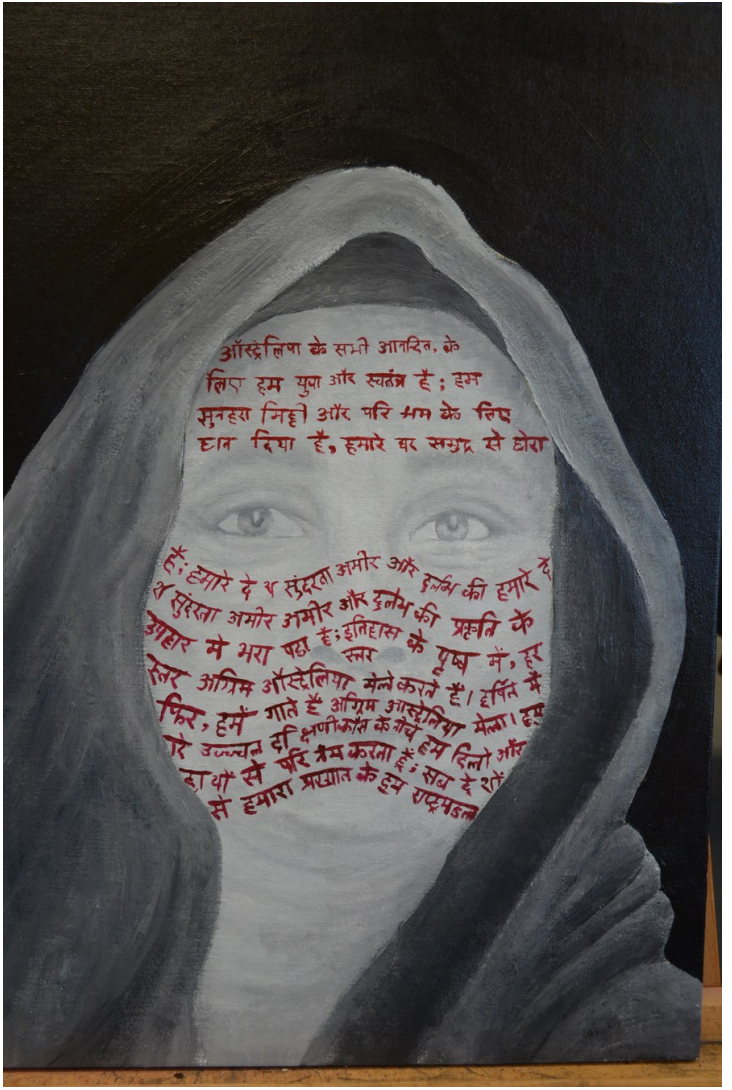 ऑस्ट्रेलिया के सभी आनदित, के
लिए हम युवा और स्वतंत्र है; हम
सुनहरा मिट्टी और परि श्रम के लिए
धन दिया है, हमारे घर समुद्र से घेरा
है; हमारे दे श सुंदरता अमीर और दुर्लभ की हमारे दे
श सुंदरता अमीर अमीर और दुर्लभ की प्रकृति के
उपहार मे भरा पडा है; इतिहास के पृष्ष में, हर
स्तर
स्तर अग्रिम ऑस्ट्रेलिया मेले करते है। हर्षित मे
फिर, हमें गाते है अग्रिम आस्ट्रेलिया मेला। हम
रे उज्ज्वल दक्षिणी क्रॉस के नीचे हम दिलो और
हा थों से परि श्रम करता हूँ; सब दे शों
से हमारा प्रख्यात के हम राष्ट्रमंडल